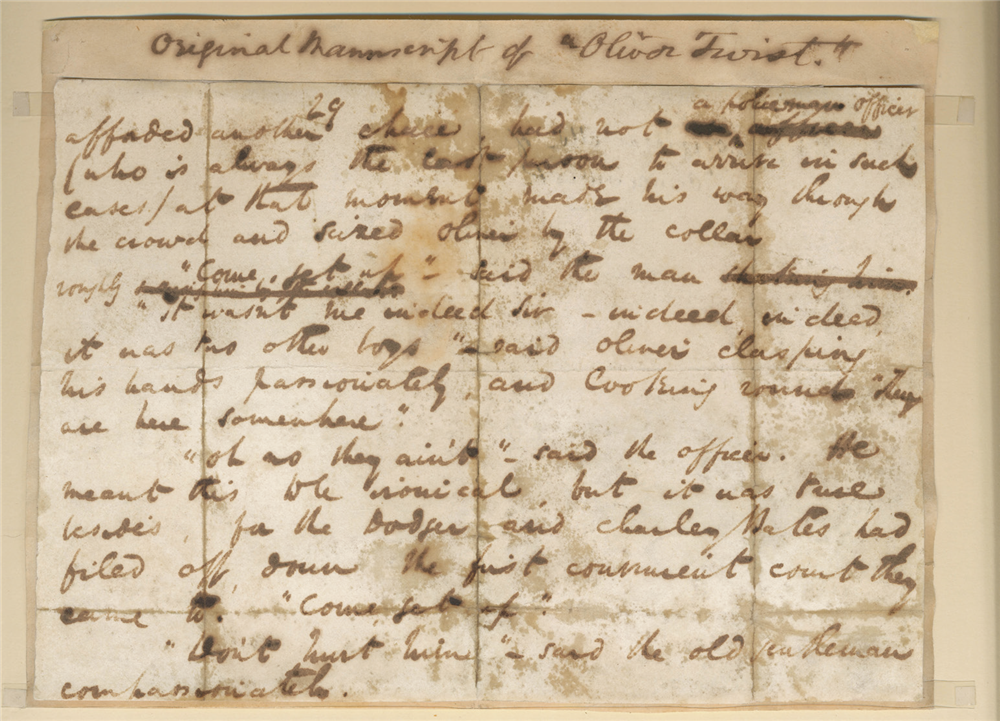 Original Manuscript of "Oliver Twist."
29
a policeman officer
afforded another chase, had not officer
(who is always the last person to arrive in such
cases) at that moment made his way through
the crowd and seized Oliver by the collar
"Come, get up" – said the man shaking him.
roughly
"It wasn't me indeed Sir – indeed, indeed,
it was two other boys" – said Oliver clasping
his hands passionately, and looking round "They
are here somewhere."
"oh no they ain't" – said the officer. He
meant this to be ironical, but it was true
besides, for the Dodger and Charley Bates had
filed off, down the first convenient court they
came to. "Come, get up".
"Don't hurt him" – said the old gentleman
compassionately.